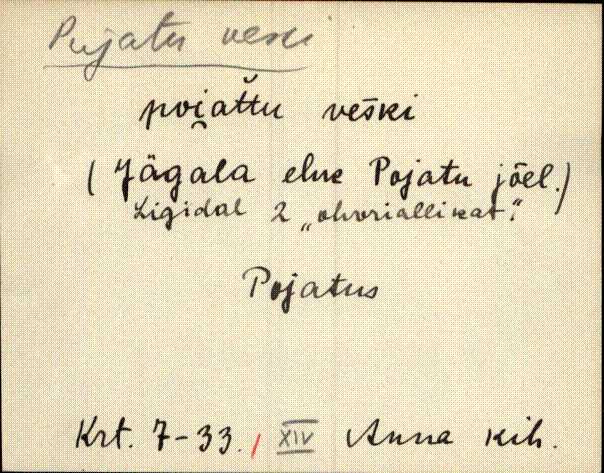 Pojatu veski
poi̯at̆tu veški
( Jägala ehk Pojatu jõel.)
Ligidal 2 „ohvriallikat".
Pojatus
Krt. 7-33. / XIV Anna kih.